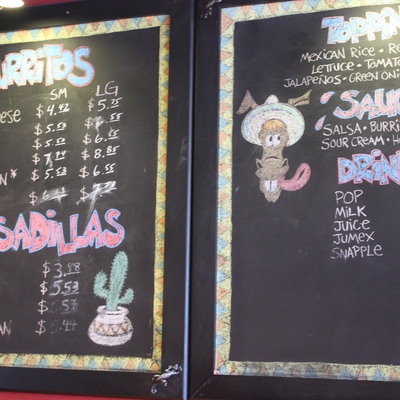 URRITOS
SM LG
ESE $4.42 $5.75
$5.53
$5.53 $6.25
$8.85
N* $5.53 $6.55
SADILLAS
$3.98
$5.53
$6.57
AN $5.44
TOPPIN
MEXICAN RICE • RE
LETTUCE • TOMATO
JALAPEÑOS • GREEN ONI
SAUC
SALSA • BURRI
SOUR CREAM • H
DRIN
POP
MILK
JUICE
JUMEX
SNAPPLE